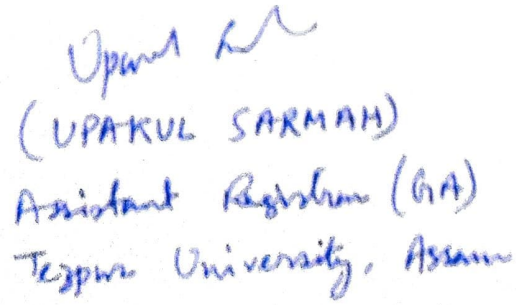 (UPAKUL SARMAH)
Assistant Registrar (GA)
Tezpur University, Assam